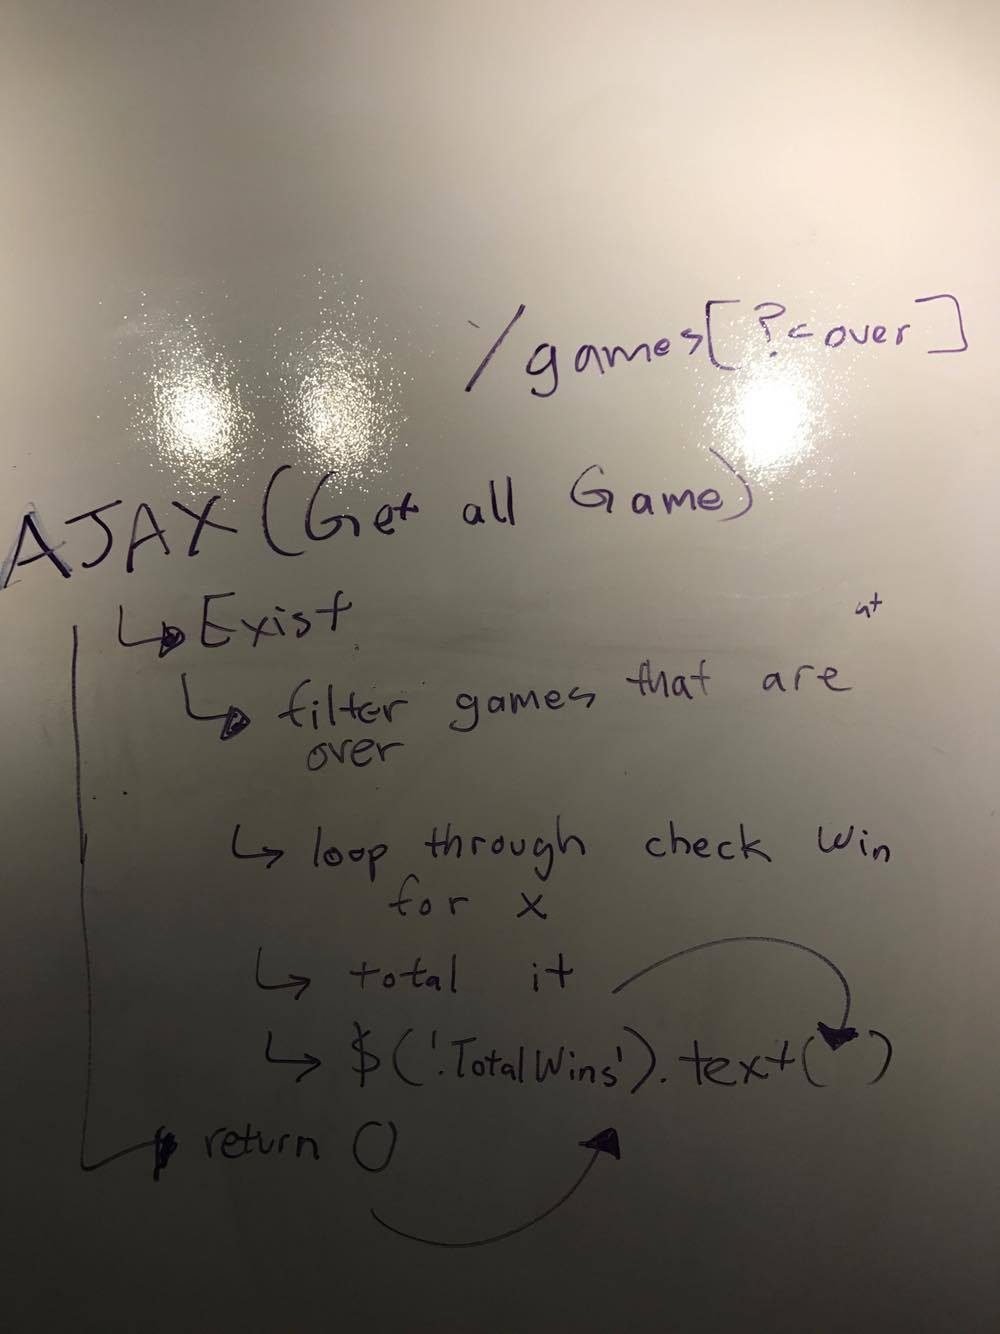 /games[?=over]
AJAX (Get all Game)
Exist
filter games that are
over
loop through check win
for x
total it
$('.TotalWins').text( )
return 0